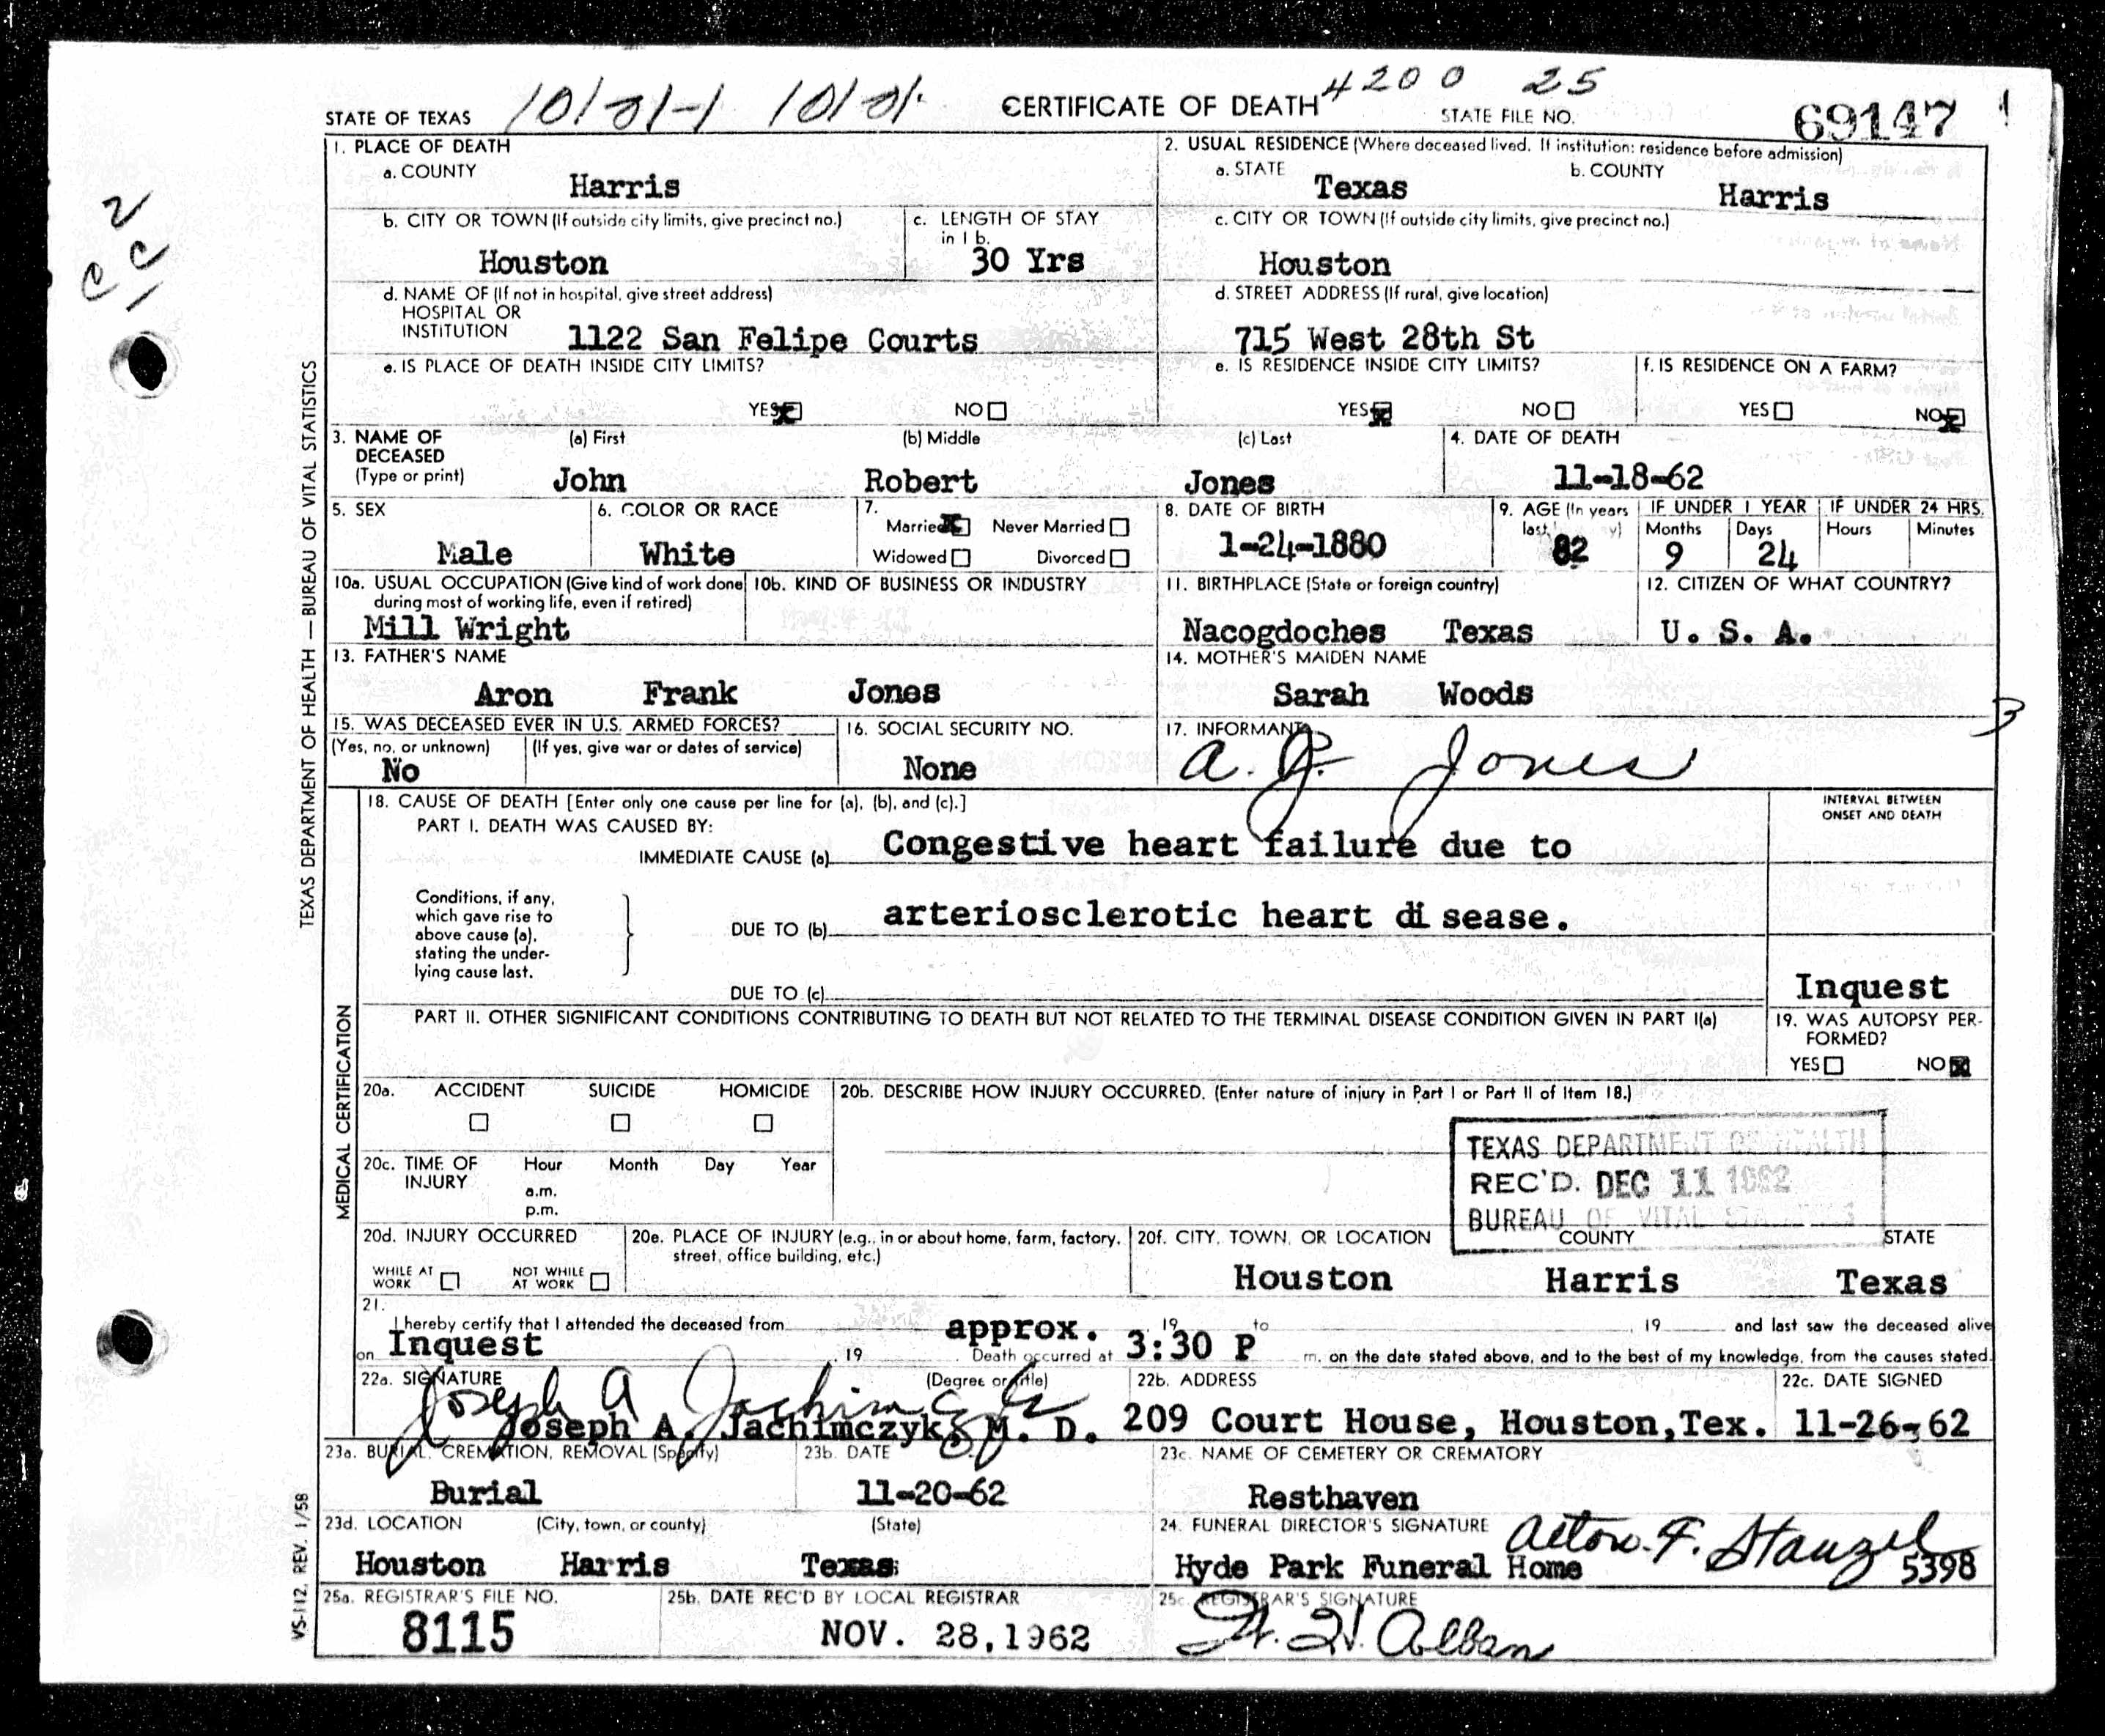 STATE OF TEXAS
CERTIFICATE OF DEATH
4200 25
STATE FILE NO. 69147
1. PLACE OF DEATH
a. COUNTY
Harris
2. USUAL RESIDENCE (Where deceased lived. If institution: residence before admission)
a. STATE
Texas
b. COUNTY
Harris
b. CITY OR TOWN (If outside city limits, give precinct no.)
Houston
c. LENGTH OF STAY
in 1 b.
30 Yrs
c. CITY OR TOWN (If outside city limits, give precinct no.)
Houston
d. NAME OF (If not in hospital, give street address)
HOSPITAL OR
INSTITUTION
1122 San Felipe Courts
d. STREET ADDRESS (If rural, give location)
715 West 28th St
e. IS PLACE OF DEATH INSIDE CITY LIMITS?
YES NO
e. IS RESIDENCE INSIDE CITY LIMITS?
YES NO
f. IS RESIDENCE ON A FARM?
YES NO
3. NAME OF
DECEASED
(Type or print)
(a) First
John
(b) Middle
Robert
(c) Last
Jones
4. DATE OF DEATH
11-18-62
5. SEX
Male
6. COLOR OR RACE
White
7.
Married Never Married
Widowed Divorced
8. DATE OF BIRTH
1-24-1880
9. AGE (In years
last
82
IF UNDER 1 YEAR
Months Days
9 24
IF UNDER 24 HRS.
Hours Minutes
10a. USUAL OCCUPATION (Give kind of work done
during most of working life, even if retired)
Mill Wright
10b. KIND OF BUSINESS OR INDUSTRY
11. BIRTHPLACE (State or foreign country)
Nacogdoches Texas
12. CITIZEN OF WHAT COUNTRY?
U. S. A.
13. FATHER'S NAME
Aron Frank Jones
14. MOTHER'S MAIDEN NAME
Sarah Woods
3
15. WAS DECEASED EVER IN U.S. ARMED FORCES?
(Yes, no, or unknown) (If yes, give war or dates of service)
No
16. SOCIAL SECURITY NO.
None
17. INFORMANT
A. J. Jones
18. CAUSE OF DEATH [Enter only one cause per line for (a), (b), and (c).]
PART I. DEATH WAS CAUSED BY:
IMMEDIATE CAUSE (a) Congestive heart failure due to
INTERVAL BETWEEN
ONSET AND DEATH
Conditions, if any,
which gave rise to
above cause (a),
stating the under-
lying cause last.
DUE TO (b) arteriosclerotic heart disease.
DUE TO (c)
Inquest
PART II. OTHER SIGNIFICANT CONDITIONS CONTRIBUTING TO DEATH BUT NOT RELATED TO THE TERMINAL DISEASE CONDITION GIVEN IN PART I(a)
19. WAS AUTOPSY PER-
FORMED?
YES NO
20a. ACCIDENT SUICIDE HOMICIDE
20b. DESCRIBE HOW INJURY OCCURRED. (Enter nature of injury in Part I or Part II of Item 18.)
TEXAS DEPARTMENT OF HEALTH
REC'D. DEC 11 1962
BUREAU OF VITAL STATISTICS
20c. TIME OF
INJURY
Hour Month Day Year
a.m.
p.m.
20d. INJURY OCCURRED
WHILE AT
WORK
NOT WHILE
AT WORK
20e. PLACE OF INJURY (e.g., in or about home, farm, factory,
street, office building, etc.)
20f. CITY, TOWN, OR LOCATION COUNTY STATE
Houston Harris Texas
21.
I hereby certify that I attended the deceased from 19 to , 19 and last saw the deceased alive
on Inquest , 19 . Death occurred at approx. 3:30 P m. on the date stated above, and to the best of my knowledge, from the causes stated.
22a. SIGNATURE (Degree or title)
Joseph A Jachimczyk
Joseph A. Jachimczyk, M. D.
22b. ADDRESS
209 Court House, Houston,Tex.
22c. DATE SIGNED
11-26-62
23a. BURIAL, CREMATION, REMOVAL (Specify)
Burial
23b. DATE
11-20-62
23c. NAME OF CEMETERY OR CREMATORY
Resthaven
23d. LOCATION (City, town, or county) (State)
Houston Harris Texas
24. FUNERAL DIRECTOR'S SIGNATURE
Alton F. Stanzel
Hyde Park Funeral Home 5398
25a. REGISTRAR'S FILE NO.
8115
25b. DATE REC'D BY LOCAL REGISTRAR
NOV. 28,1962
25c. REGISTRAR'S SIGNATURE
TEXAS DEPARTMENT OF HEALTH — BUREAU OF VITAL STATISTICS
MEDICAL CERTIFICATION
VS-112, REV. 1/58